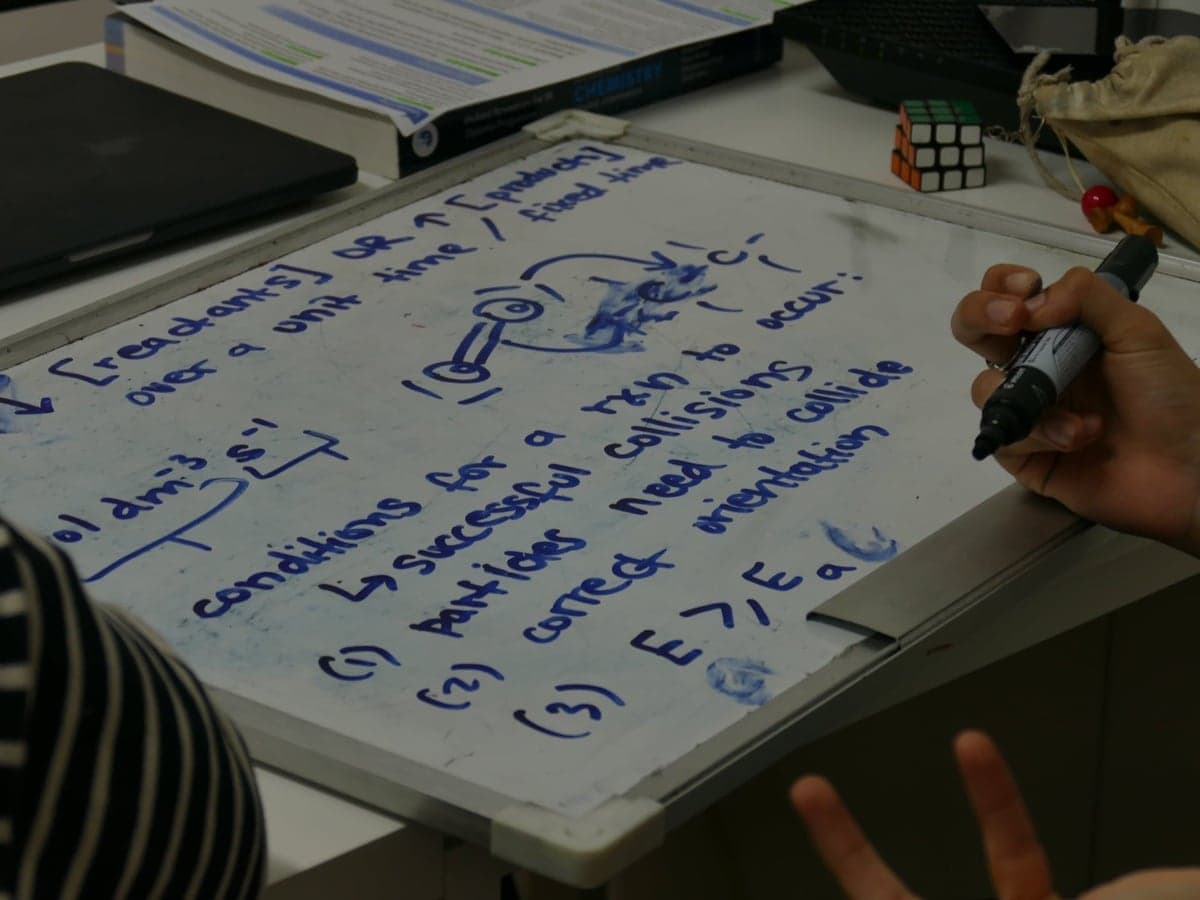 CHEMISTRY
↓ [reactants] OR ↑ [products]
over a unit time / fixed time
ol dm⁻³ s⁻¹
O
O
C
conditions for a rxn to occur:
↳ successful collisions
(1) particles need to collide
(2) correct orientation
(3) E ⩾ Ea